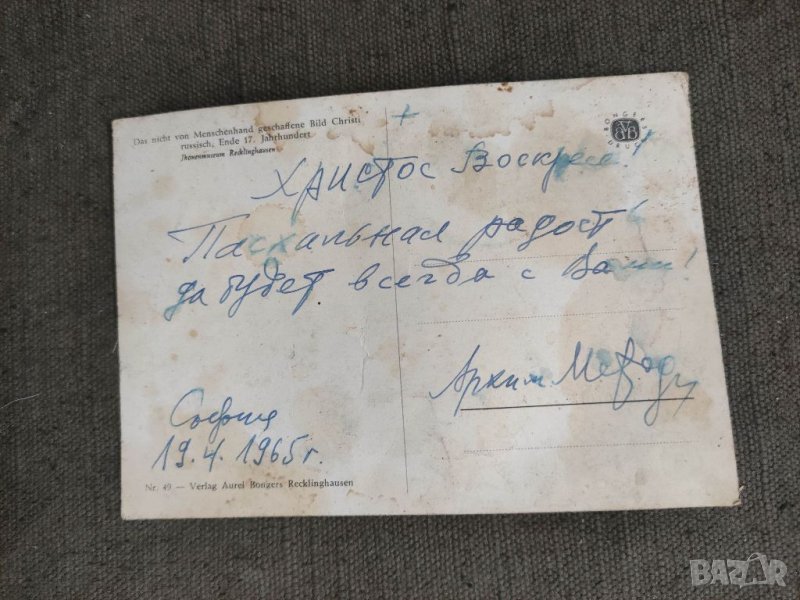 Das nicht von Menschenhand geschaffene Bild Christi
russisch, Ende 17. Jahrhundert
Ikonenmuseum Recklinghausen
+
Христос Воскресе!
Пасхальная радость
да будет всегда с Вами!
Архим Мефодий
София
19.4.1965 г.
Nr. 49 — Verlag Aurel Bongers Recklinghausen
BAZAR